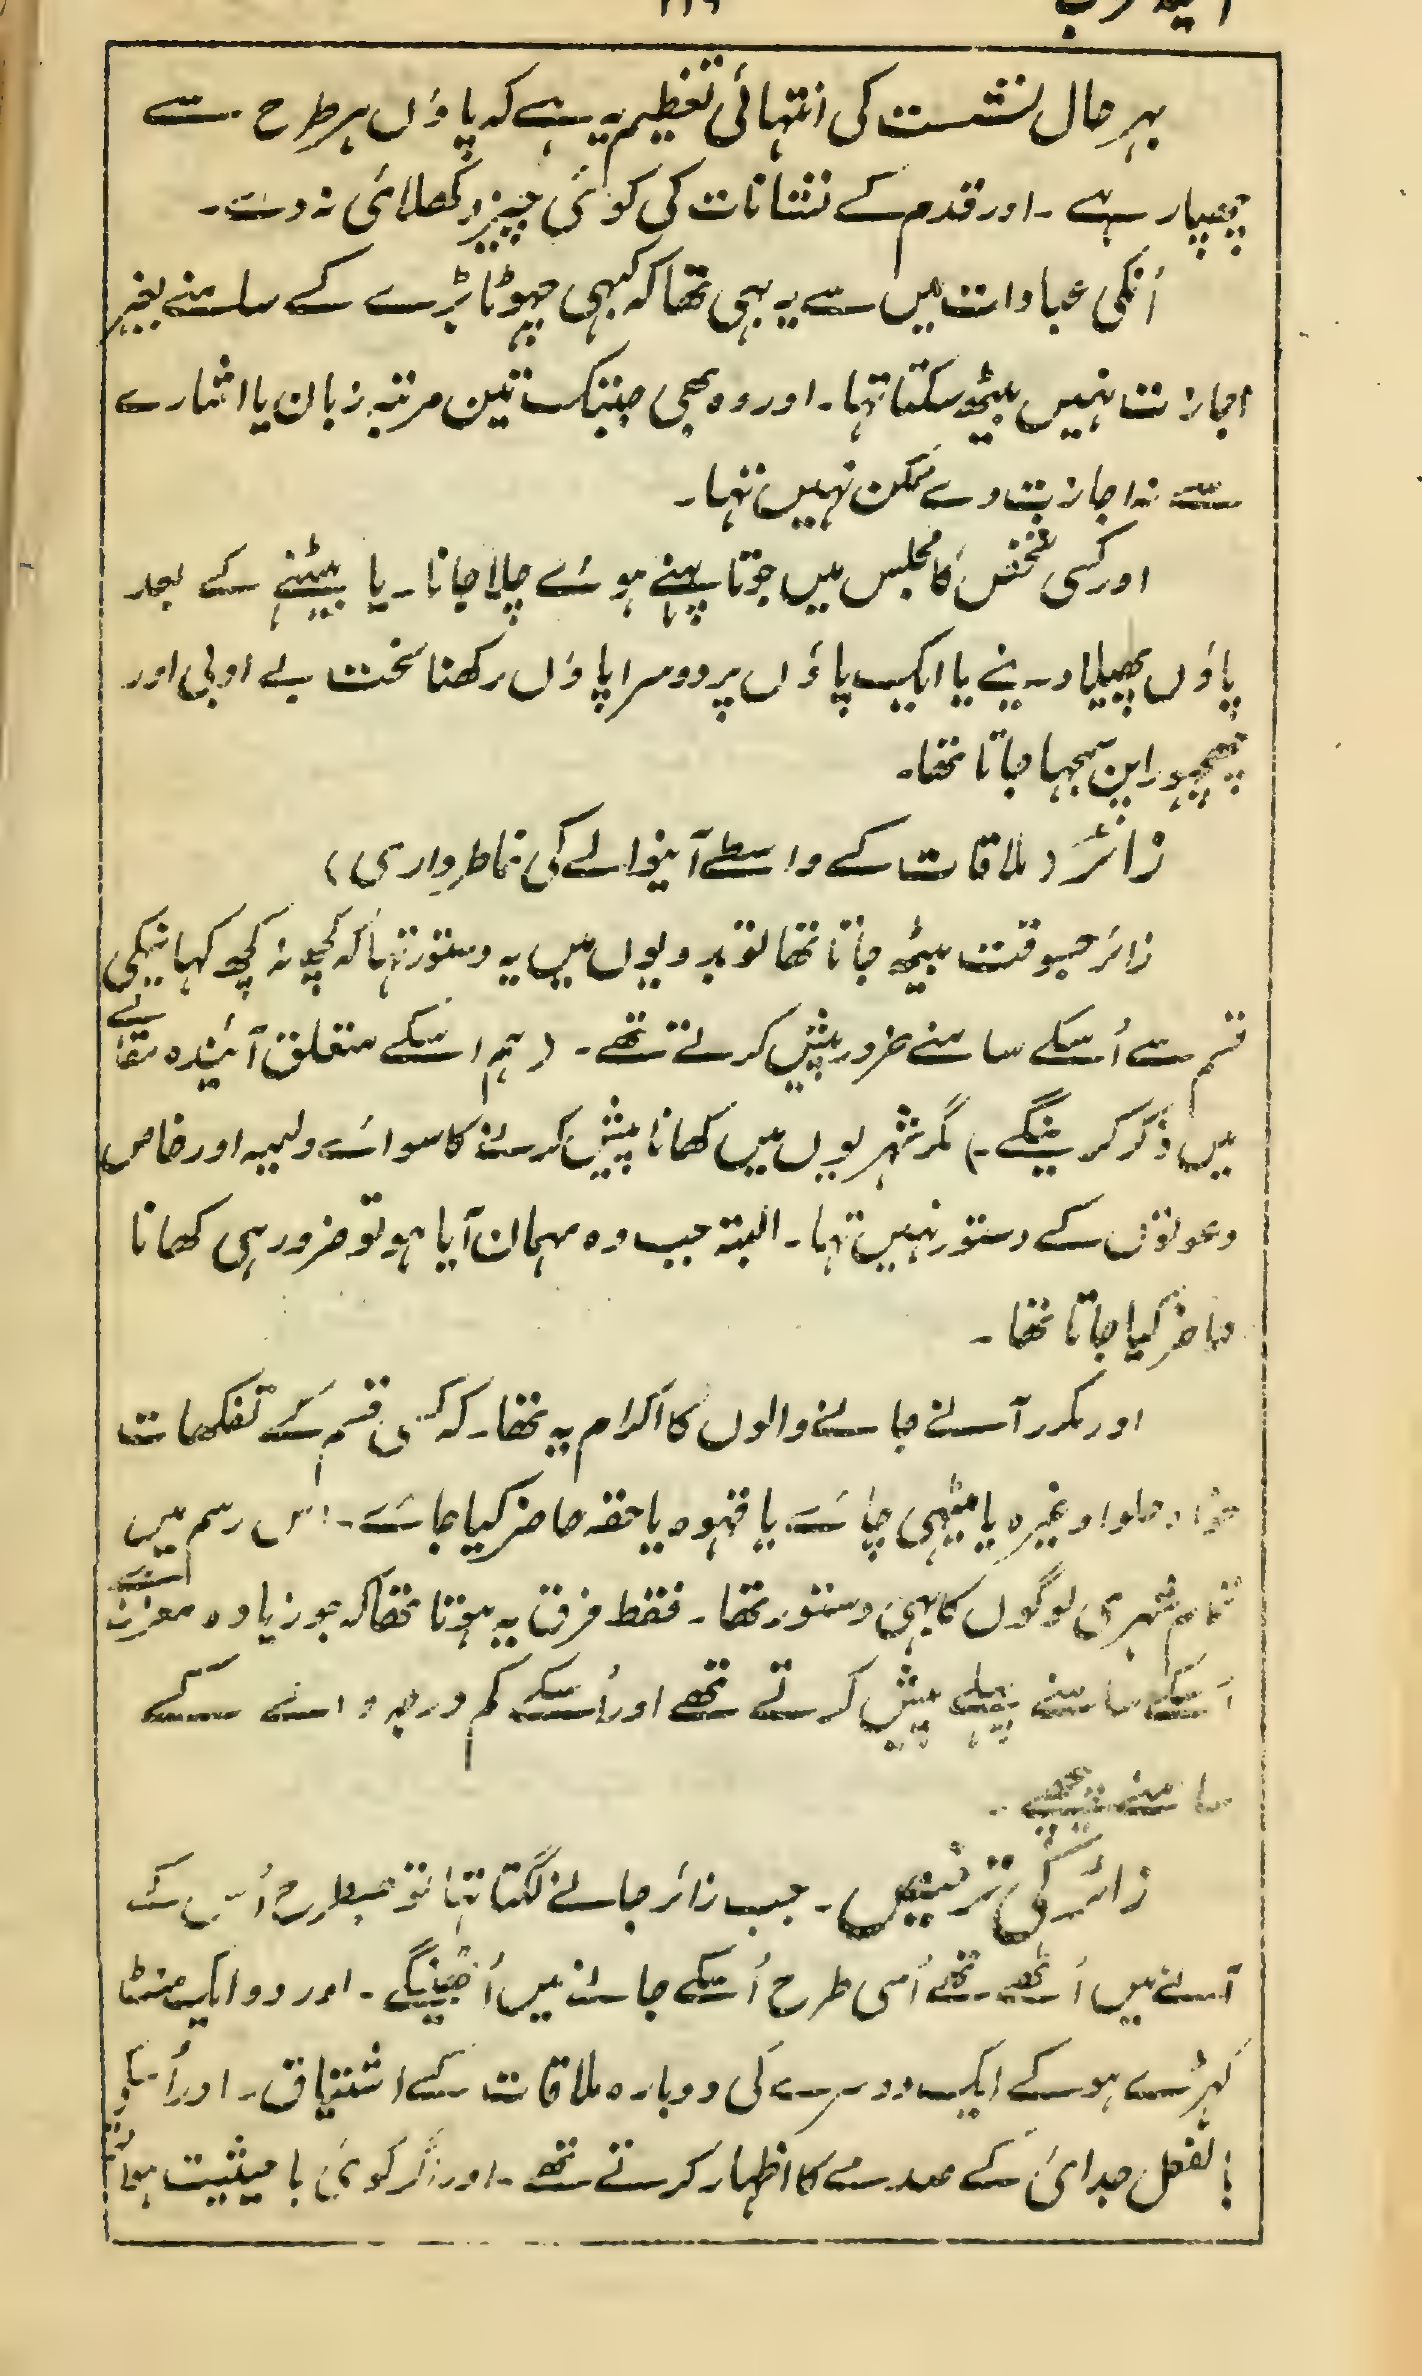 بہر حال نشست کی انتہائی تعظیم یہ ہے کہ پاؤں ہر طرح سے
چھپا رہے ۔ اور قدم کے نشانات کی کوئی چیز دکھلائی نہ دے ۔
اُنکی عبادات میں سے یہ بہی تھا کہ کبہی چھوٹا بڑے کے سامنے بغیر
اجازت نہیں بیٹھ سکتا تہا ۔ اور وہ بھی جبتک تین مرتبہ زبان یا اشارے
سے نہ اجازت دے ممکن نہیں تہا ۔
اور کسی شخص کا مجلس میں جوتا پہنے ہوئے چلا جانا ۔ یا بیٹہنے کے بعد
پاؤں پھیلا دینے یا ایک پاؤں پر دوسرا پاؤں رکھنا سخت بے ادبی اور
چھچھوراپن سمجہا جاتا تھا ۔
زائر (ملاقات کے واسطے آنیوالے کی خاطرداری)
زائر جسوقت بیٹھ جاتا تھا تو بدویوں میں یہ دستور تہا کہ کچھ نہ کچھ کہانیکی
قسم سے اُسکے سامنے ضرور پیش کرتے تھے ۔ (ہم اسکے متعلق آئیندہ مقالے
میں ذکر کرینگے ۔) مگر شہریوں میں کھانا پیش کرنے کا سوائے ولیمہ اور خاص
دعوتوں کے دستور نہیں تہا ۔ البتہ جب وہ مہمان آیا ہو تو ضرور ہی کھانا
حاضر کیا جاتا تھا ۔
اور مکرر آنے جانے والوں کا اکرام یہ تھا ۔ کہ کسی قسم کے تفکھات
حلوا وغیرہ یا میٹہی چائے یا قہوہ یا حقہ حاضر کیا جائے ۔ اس رسم میں
تمام شہری لوگوں کا یہی دستور تھا ۔ فقط فرق یہ ہوتا تھا کہ جو زیادہ معزز ہے
اُسکے سامنے پہلے پیش کرتے تھے اور اُسکے کم درجہ والے کے
سامنے پیچھے ۔
زائر کی ترخیص ۔ جب زائر جانے لگتا تہا تو جسطرح اُس کے
آنے میں اُٹھے تھے اُسی طرح اُسکے جانے میں اُٹھینگے ۔ اور دو ایک منٹ
کہڑے ہو کے ایک دوسرے کی دوبارہ ملاقات کے اشتیاق ۔ اور اُسکی
بالفعل جدائی کے صدمے کا اظہار کرتے تھے ۔ اور اگر کوئی با حیثیت